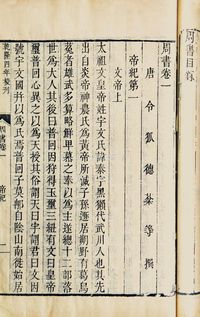 周書目錄
周書卷一
唐令狐德棻等撰
帝紀第一
文帝上
太祖文皇帝姓宇文氏諱泰字黑獺代武川人也其先
出自炎帝神農氏為黃帝所滅子孫遯居朔野有葛烏
菟者雄武多算略鮮卑慕之奉以為主遂總十二部落
世為大人其後曰普回因狩得玉璽三紐有文曰皇帝
璽普回心異之以為天授其俗謂天曰宇謂君曰文因
號宇文國并以為氏焉普回子莫那自陰山南徙始居
乾隆四年校刊 周書卷一 帝紀 一